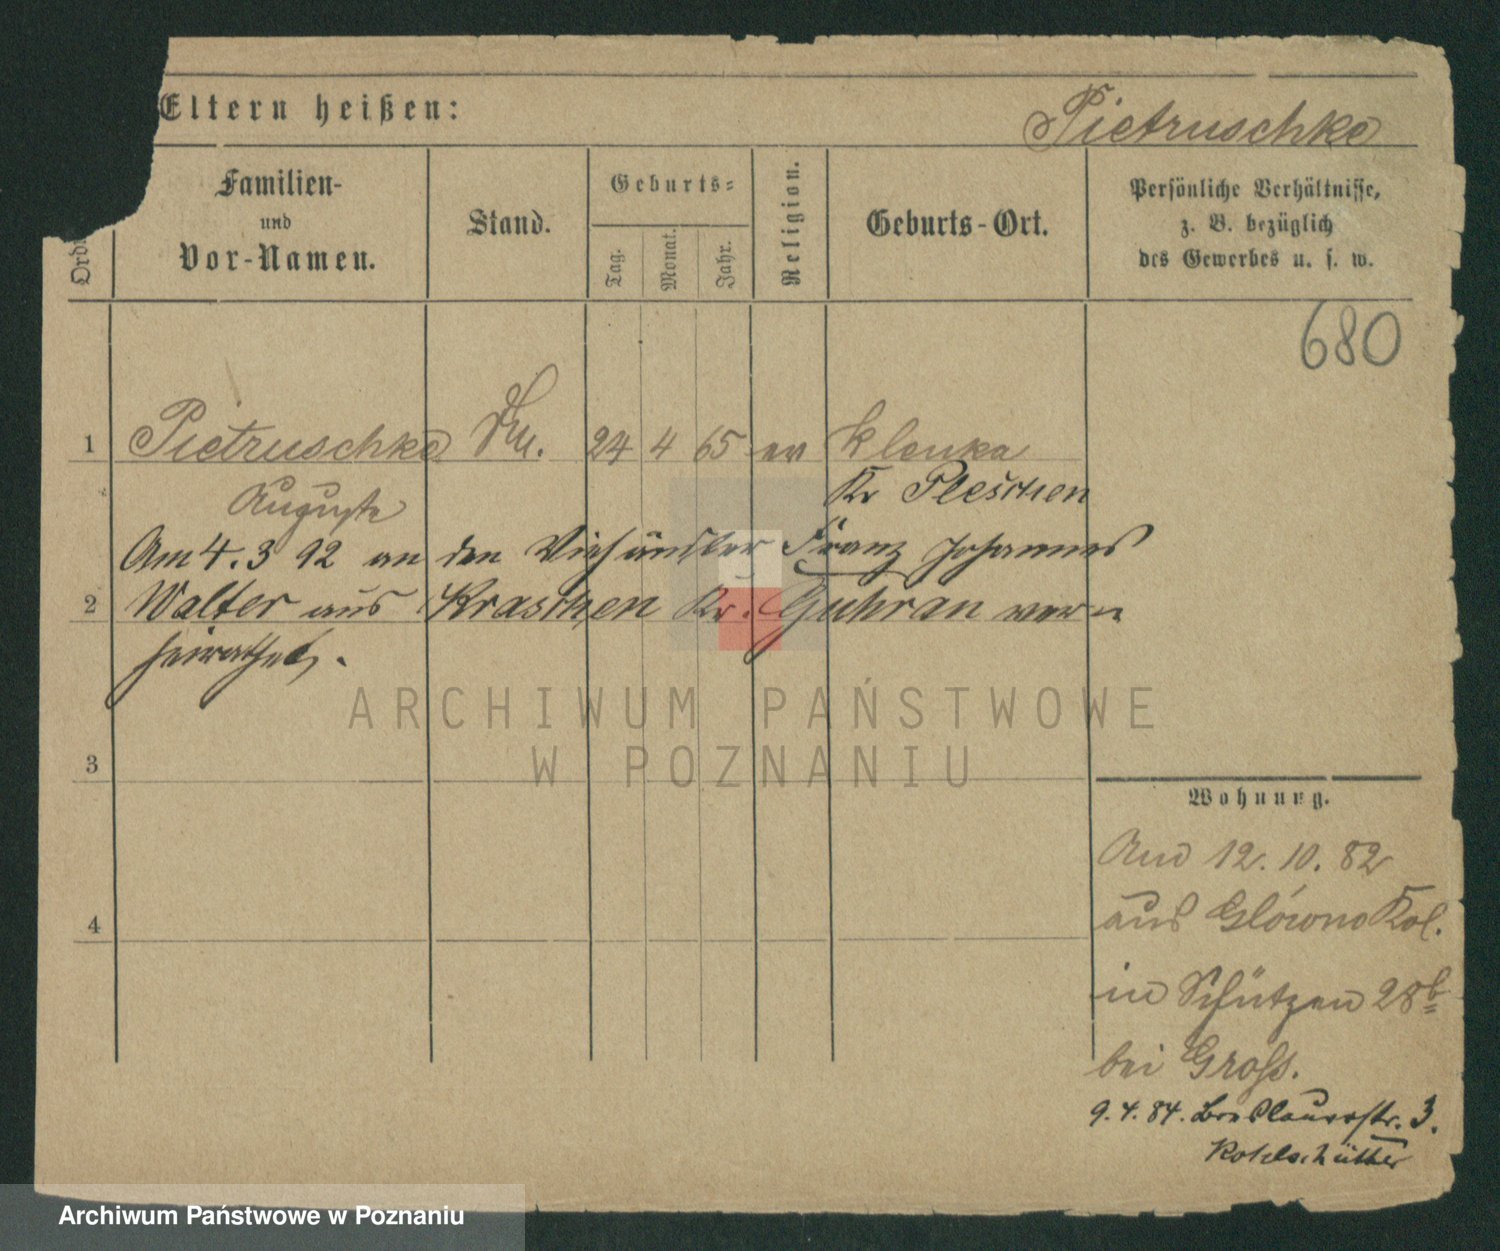 Eltern heißen:
Pietruschke
Familien-
und
Vor-Namen.
Stand.
Geburts-
Tag.
Monat.
Jahr.
Religion.
Geburts-Ort.
Persönliche Verhältnisse,
z. B. bezüglich
des Gewerbes u. s. w.
680
1 Pietruschke 24 4 65 ev Klenka
Auguste Kr Pleschen
Am 4. 3 92 an den Viehändler Franz Johannes
2 Walter aus Kraschen Kr. Guhrau ver=
heirathet.
3
Wohnung.
12. 10. 82
4 aus Glówno Kol.
in Schützen 28b
bei Gross.
9. 4. 84. Breslauerstr. 3.
Kohlschütter
ARCHIWUM PAŃSTWOWE
W POZNANIU
Archiwum Państwowe w Poznaniu